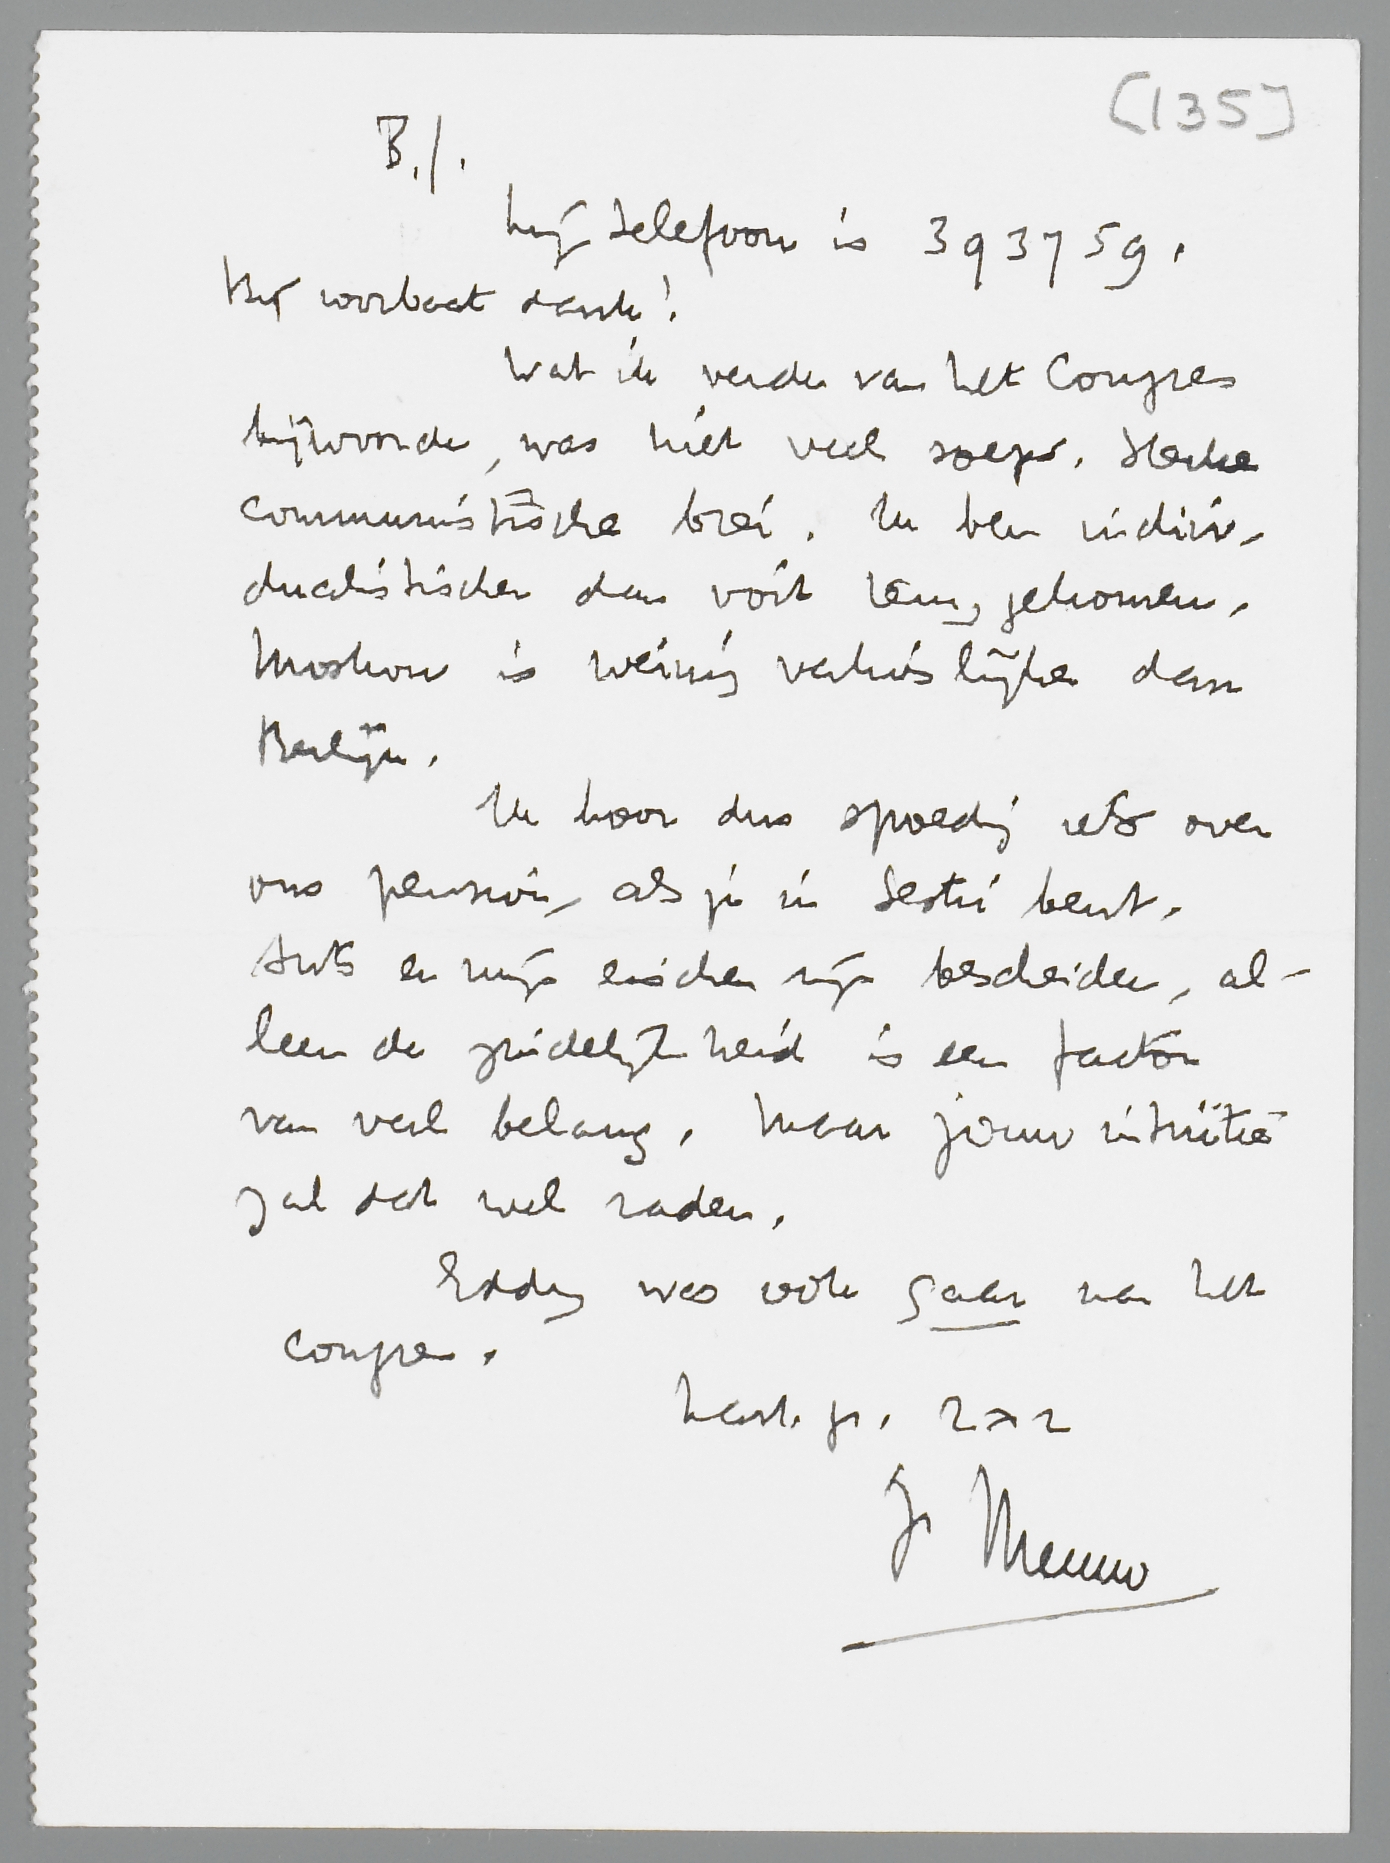 [135]
B./.
Mijn telefoon is 393759.
Bij voorbaat dank!
Wat ik verder van het Congres
bijwoonde, was niet veel soeps. Sterke
communistische brei. Ik ben indivi-
dualistischer dan ooit teruggekomen.
Moskou is weinig verkieslijker dan
Berlijn.
Ik hoor dus spoedig iets over
ons pension, als je in bent.
Ants en mijn eischen zijn bescheiden, al-
leen de zindelijkheid is een factor
van veel belang. Maar jouw intuïtie
zal dat wel raden.
Eddy was ook gaar van het
congres.
hart. gr. 2 x 2
Je Menno